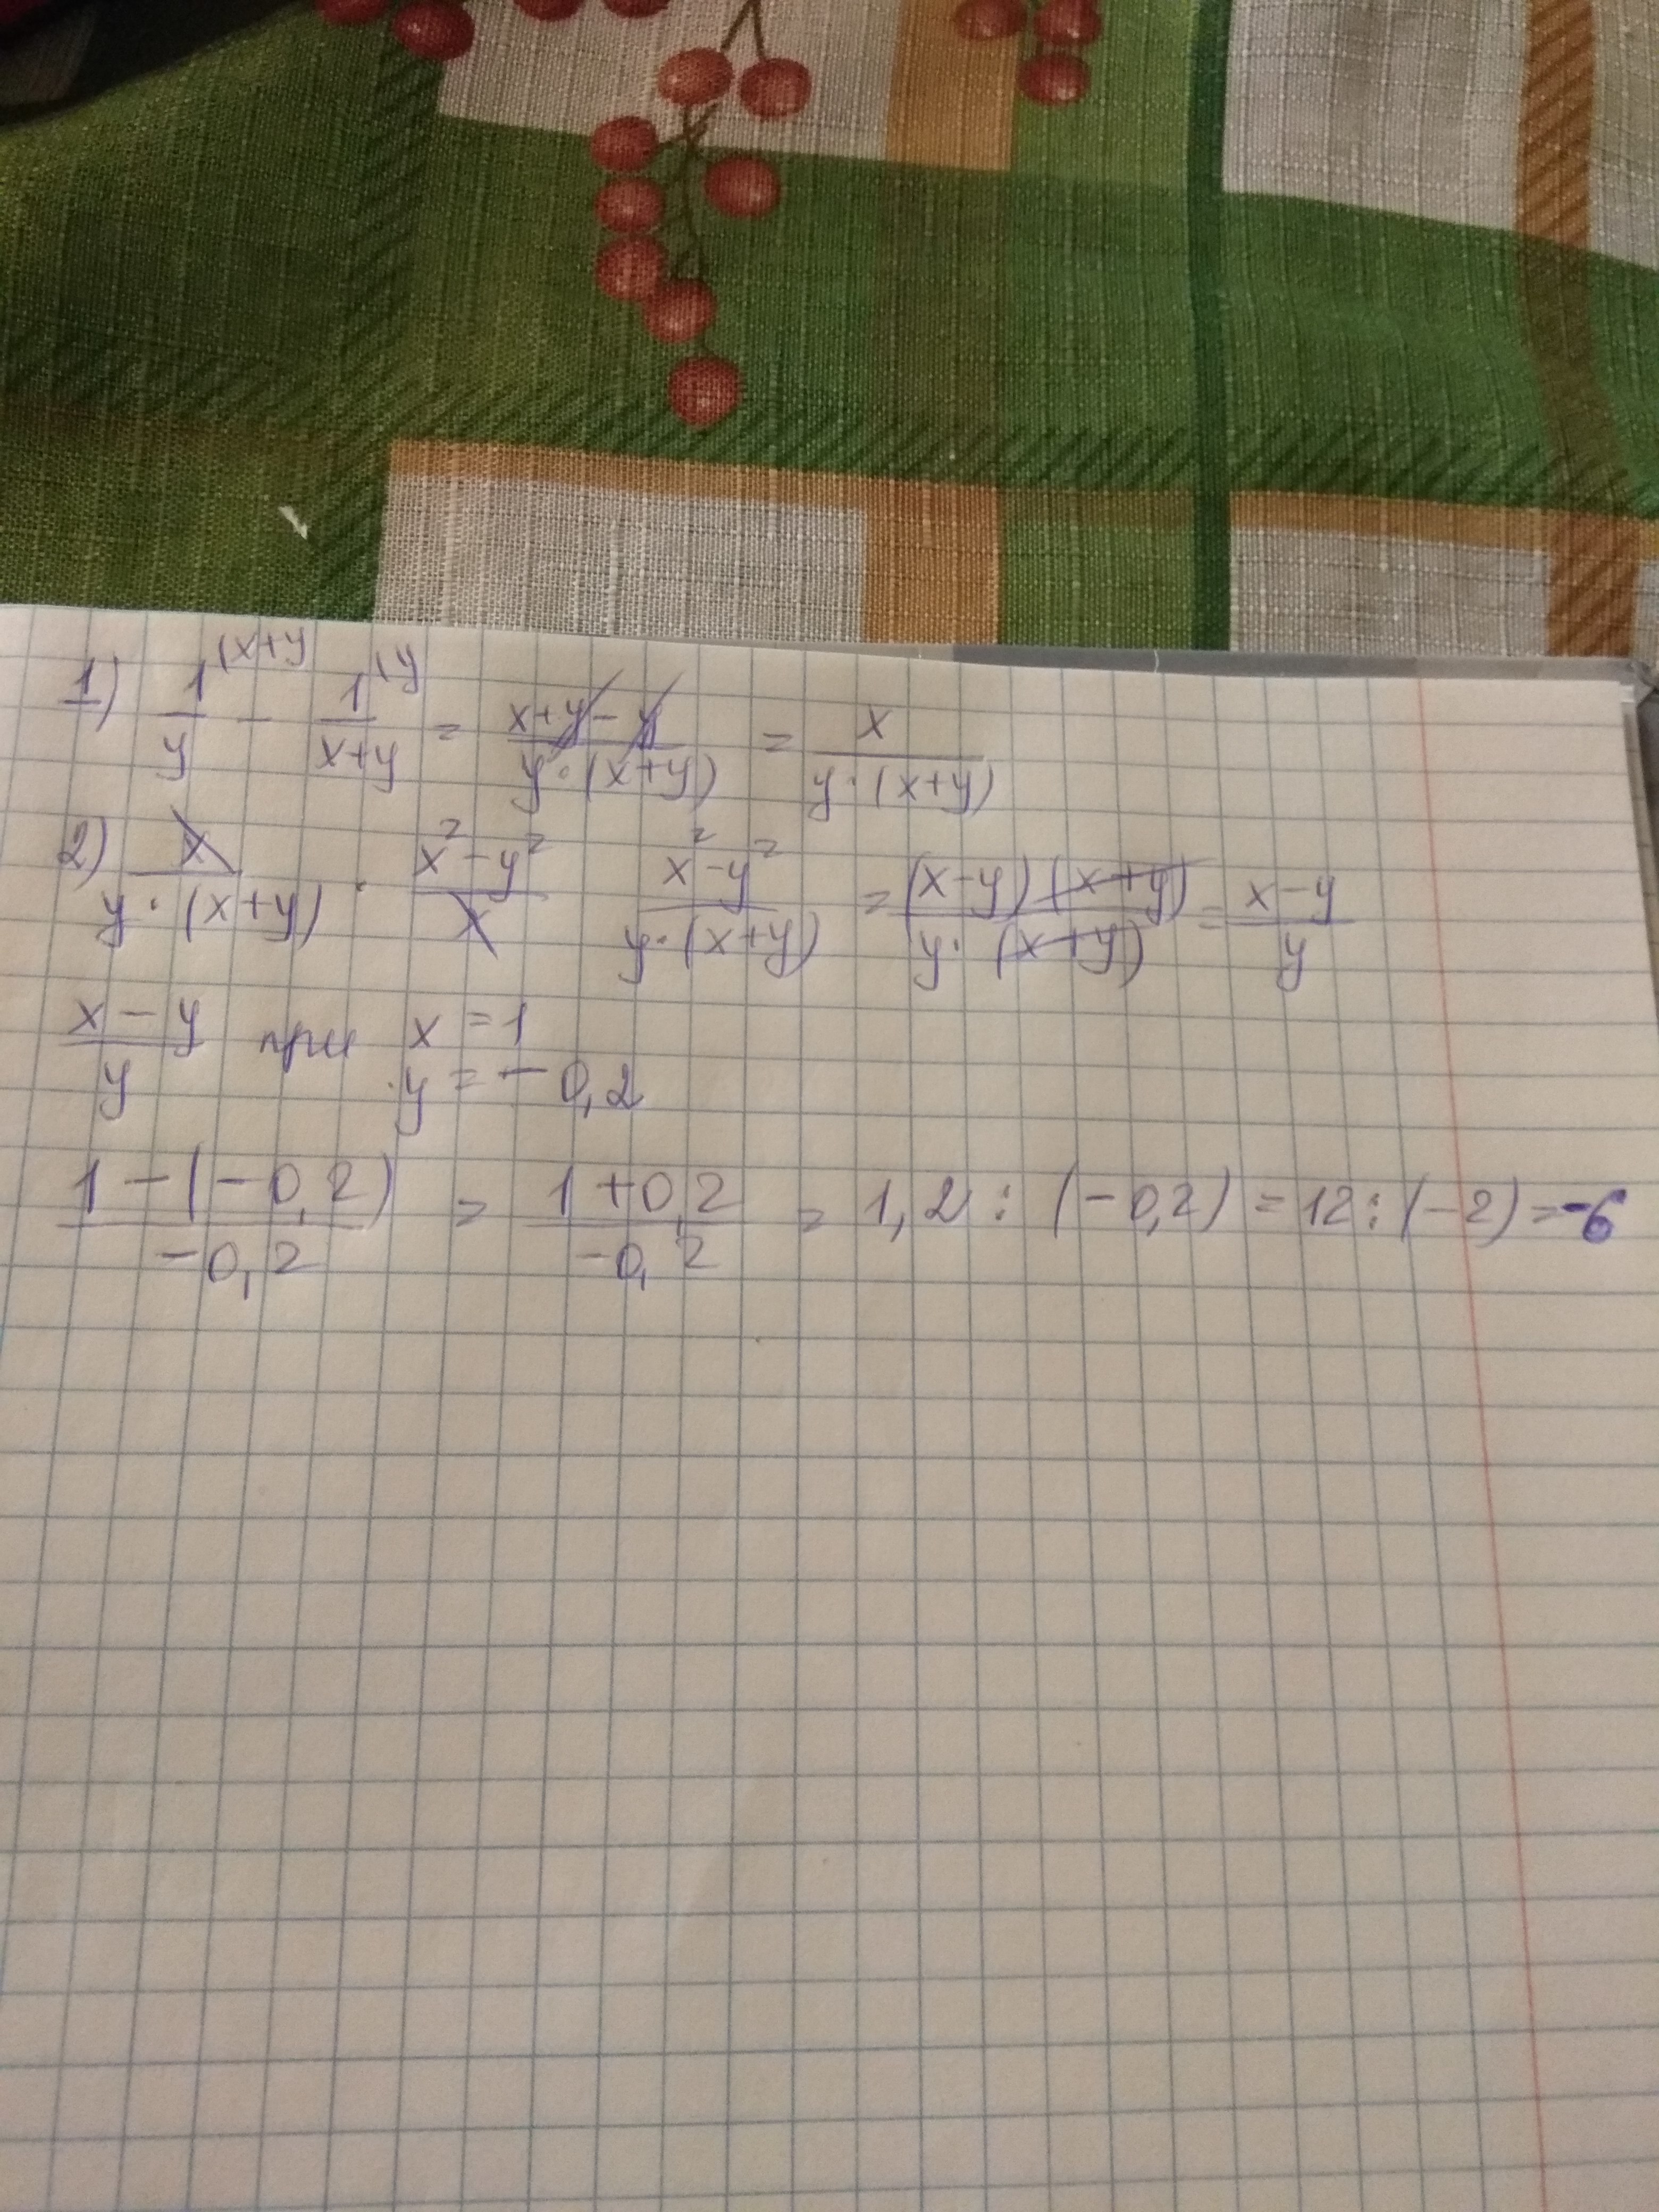 1) 1/y (x+y - 1/(x+y) (y = (x+y-y)/(y·(x+y)) = x/(y·(x+y))
2) x/(y·(x+y)) · (x²-y²)/x (x²-y²)/(y·(x+y)) = (x-y)(x+y)/(y·(x+y)) = (x-y)/y
(x-y)/y при x=1
y=-0,2
(1-(-0,2))/(-0,2) = (1+0,2)/(-0,2) = 1,2:(-0,2)=12:(-2)=-6